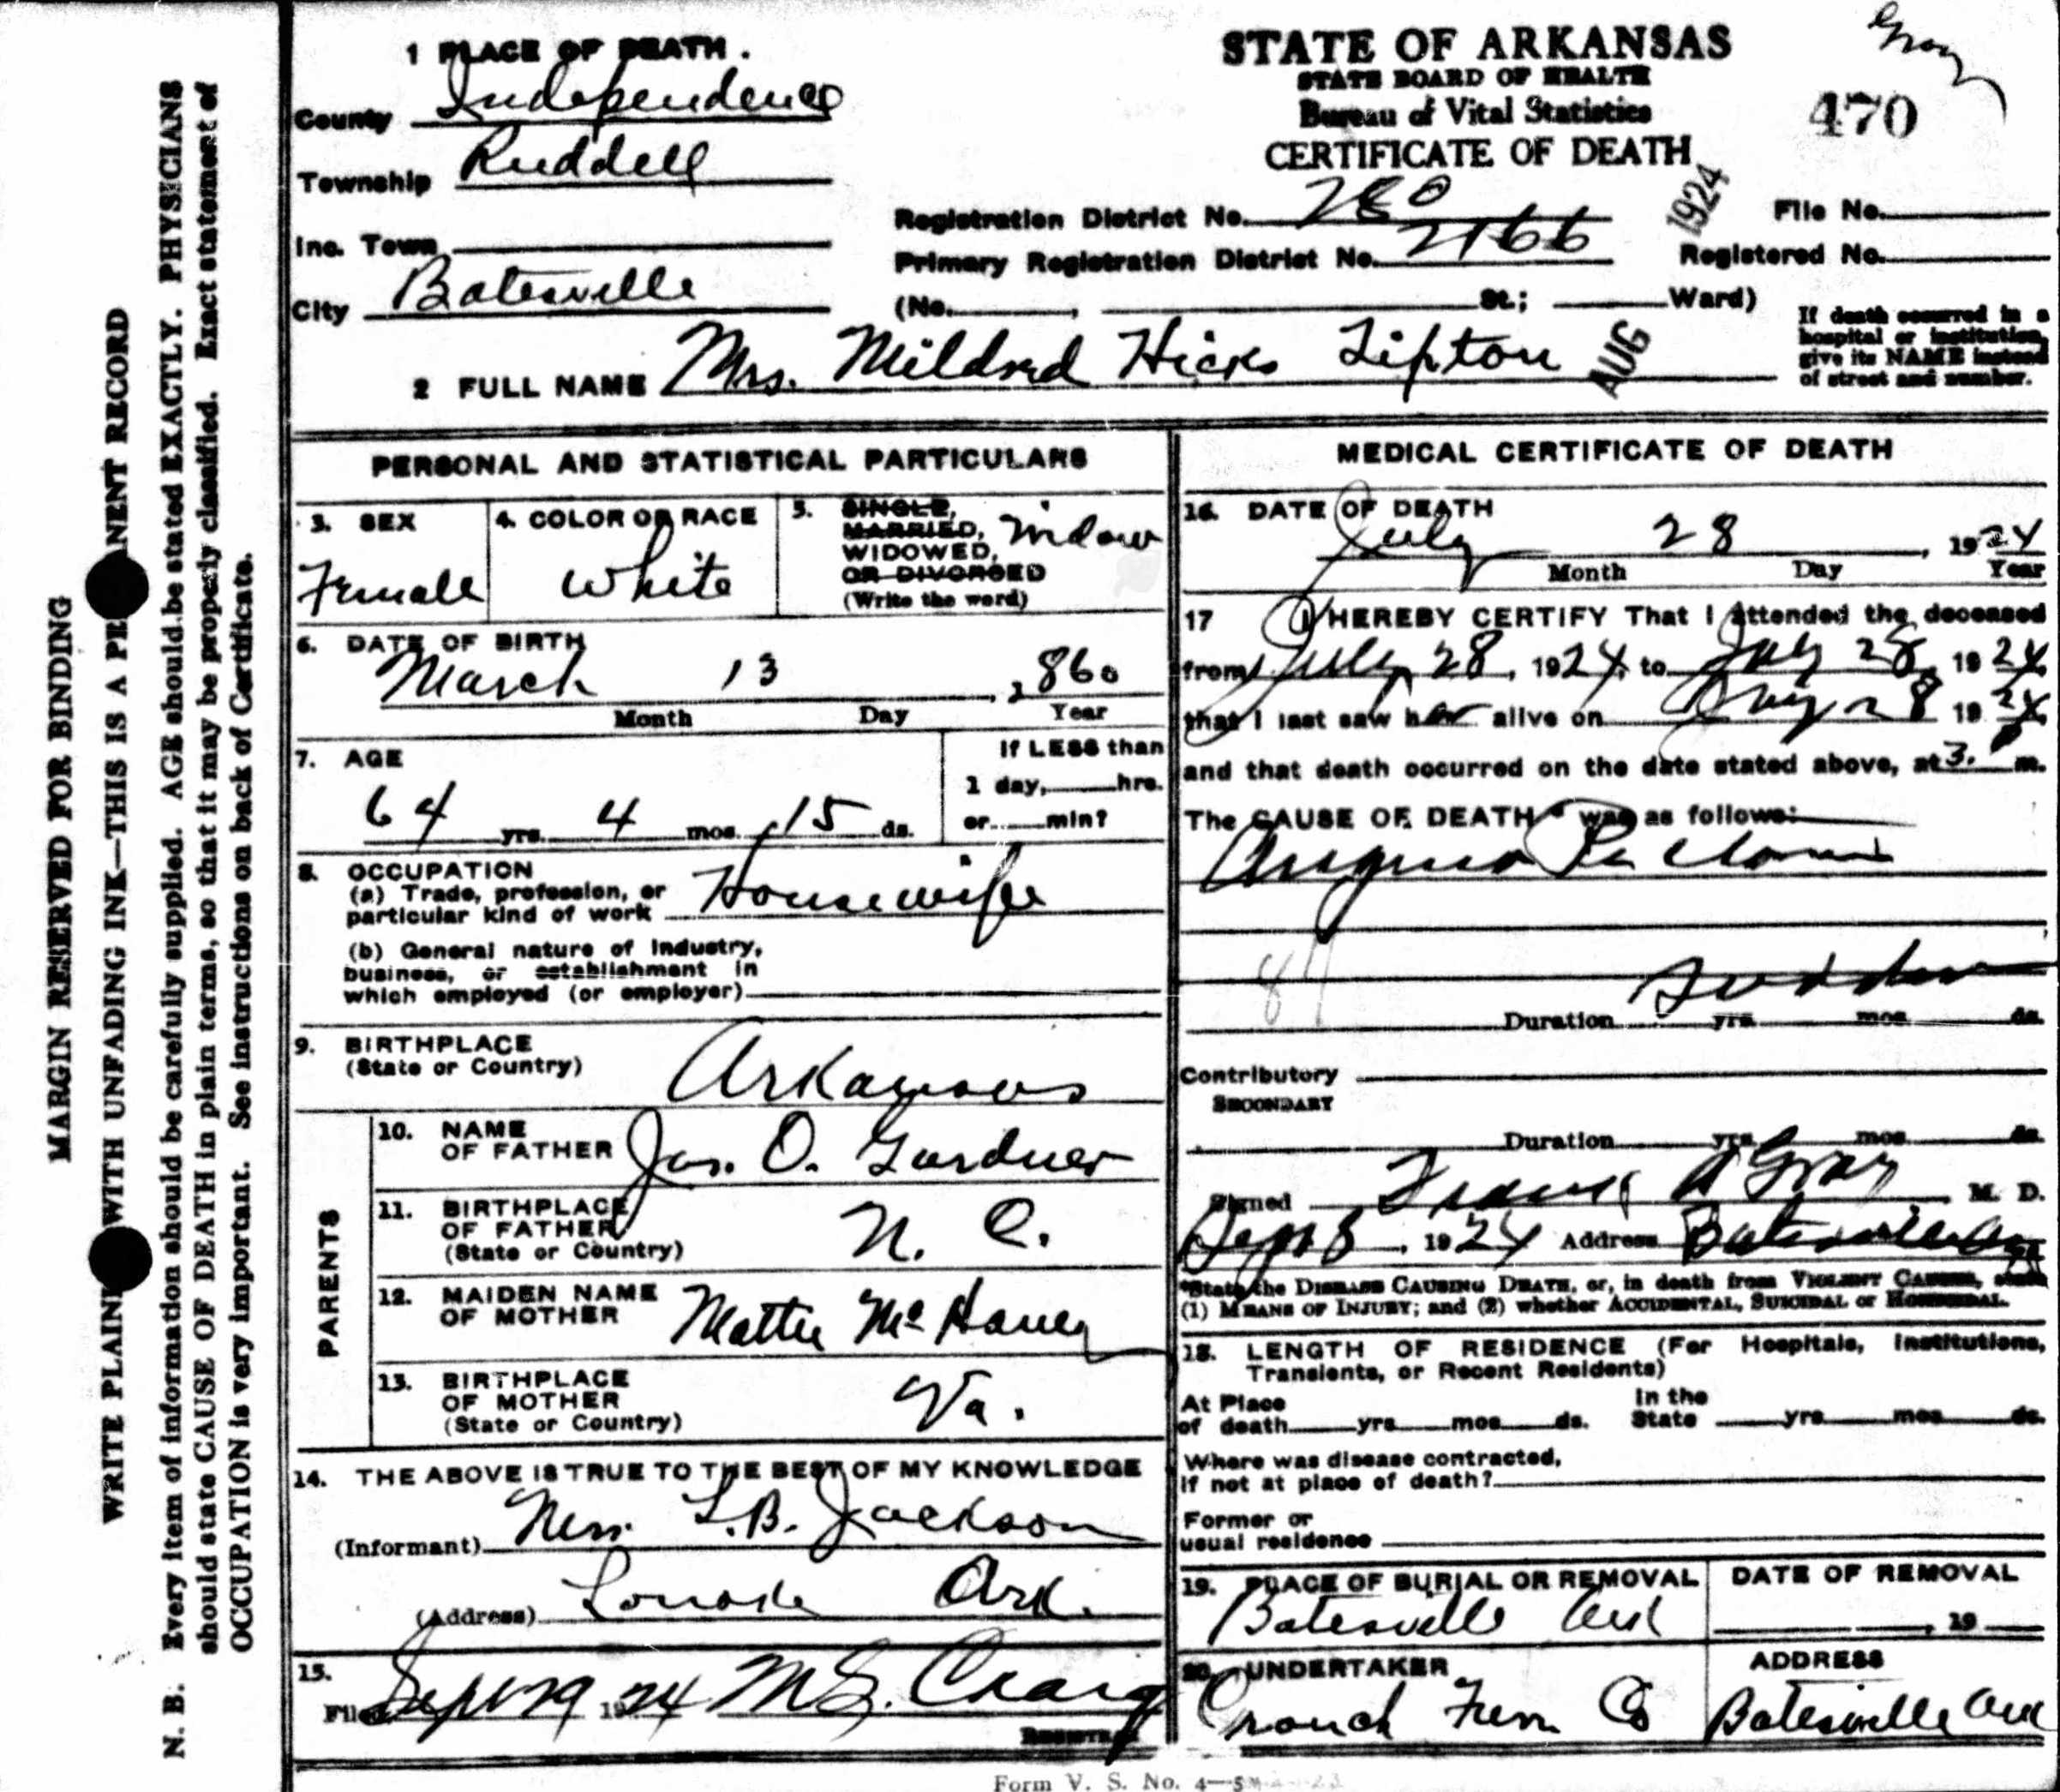 MARGIN RESERVED FOR BINDING
WRITE PLAIN WITH UNFADING INK—THIS IS A PE NENT RECORD
N. B. Every item of information should be carefully supplied. AGE should be stated EXACTLY. PHYSICIANS
should state CAUSE OF DEATH in plain terms, so that it may be properly classified. Exact statement of
OCCUPATION is very important. See instructions on back of Certificate.
1 PLACE OF DEATH.
County Independence
Township Ruddell
Inc. Town
City Batesville
STATE OF ARKANSAS
STATE BOARD OF HEALTH
Bureau of Vital Statistics
CERTIFICATE OF DEATH
Gray
470
1924
Registration District No. 280
File No.
Primary Registration District No. 2166
Registered No.
(No. , St.; Ward)
If death occurred in a
hospital or institution,
give its NAME instead
of street and number.
2 FULL NAME Mrs. Mildred Hicks Lipton
AUG
PERSONAL AND STATISTICAL PARTICULARS
3. SEX
Female
4. COLOR OR RACE
White
5. SINGLE,
MARRIED,
WIDOWED,
OR DIVORCED
(Write the word)
Widow
6. DATE OF BIRTH
March 13 , 1860
Month Day Year
7. AGE
64 yrs. 4 mos. 15 ds.
If LESS than
1 day, hrs.
or min?
8. OCCUPATION
(a) Trade, profession, or
particular kind of work Housewife
(b) General nature of Industry,
business, or establishment in
which employed (or employer)
9. BIRTHPLACE
(State or Country) Arkansas
PARENTS
10. NAME
OF FATHER Jas. O. Gardner
11. BIRTHPLACE
OF FATHER
(State or Country) N. C.
12. MAIDEN NAME
OF MOTHER Mattie McHaney
13. BIRTHPLACE
OF MOTHER
(State or Country) Va.
14. THE ABOVE IS TRUE TO THE BEST OF MY KNOWLEDGE
(Informant) L.B. Jackson
(Address) Lonoke Ark.
15.
Filed Sept 29 1924 M.S. Craig
Registrar
MEDICAL CERTIFICATE OF DEATH
16. DATE OF DEATH
July 28 , 1924
Month Day Year
17 I HEREBY CERTIFY That I attended the deceased
from July 28, 1924, to July 28, 1924,
that I last saw her alive on 28 1924,
and that death occurred on the date stated above, at 3. P m.
The CAUSE OF DEATH* was as follows:
Angina Pectoris
89
Sudden
Duration yrs. mos. ds.
Contributory
SECONDARY
Duration yrs. mos. ds.
Signed Frank A Gray M. D.
Sept 8, 1924 Address Batesville Ark
*State the DISEASE CAUSING DEATH, or, in death from VIOLENT CAUSES, state
(1) MEANS OF INJURY; and (2) whether ACCIDENTAL, SUICIDAL or HOMICIDAL.
18. LENGTH OF RESIDENCE (For Hospitals, Institutions,
Transients, or Recent Residents)
At Place In the
of death yrs. mos. ds. State yrs. mos. ds.
Where was disease contracted,
if not at place of death?
Former or
usual residence
19. PLACE OF BURIAL OR REMOVAL
Batesville Ark
DATE OF REMOVAL
, 19
20. UNDERTAKER
Crouch Furn Co
ADDRESS
Batesville Ark
Form V. S. No. 4—5